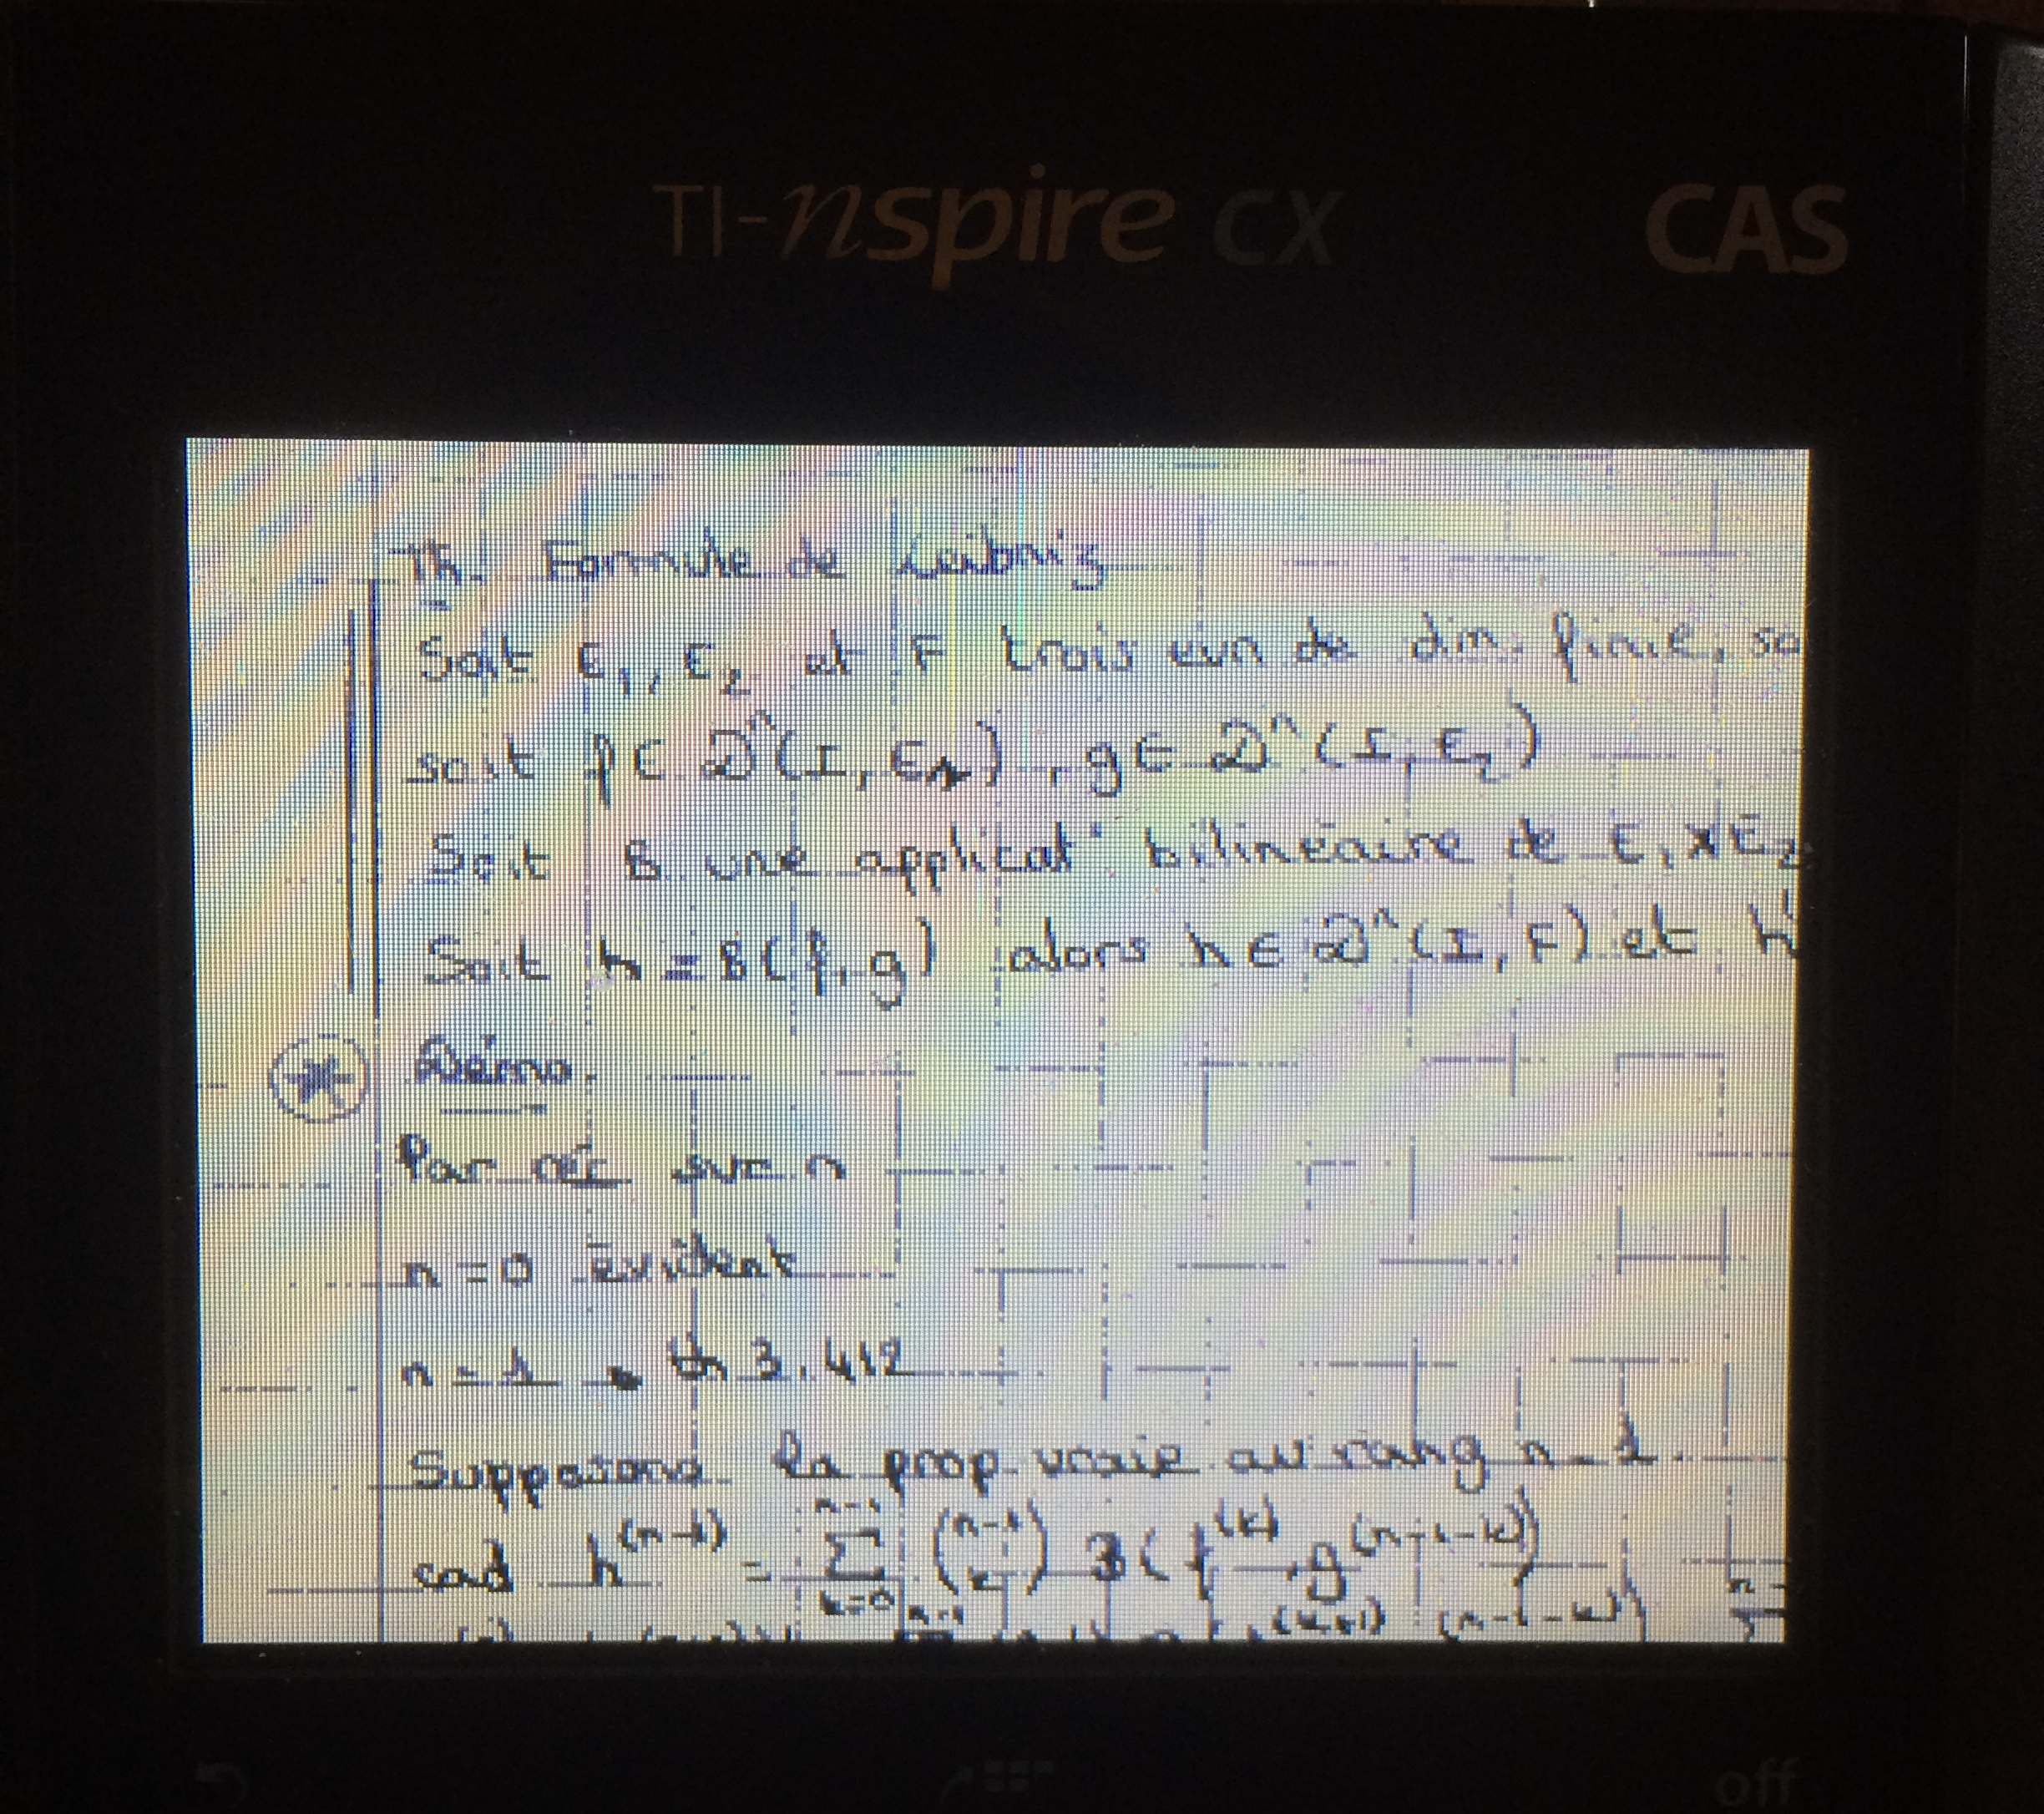 TI-nspire CX CAS
Th. Formule de Leibniz
Soit E₁, E₂ et F trois evn de dim. finie, so
soit f ∈ 𝒟ⁿ(I, E₁), g ∈ 𝒟ⁿ(I, E₂)
Soit B une applicat° bilinéaire de E₁ × E₂
Soit h = B(f, g) alors h ∈ 𝒟ⁿ(I, F) et h
Démo.
Par réc sur n
n = 0 évident
n = 1 th 3.412
Supposons la prop vraie au rang n-1.
cad h⁽ⁿ⁻¹⁾ = Σ_{k=0}^{n-1} (n-1 k) B(f⁽ᵏ⁾, g⁽ⁿ⁻¹⁻ᵏ⁾)
(k+1) (n-1-k)
off